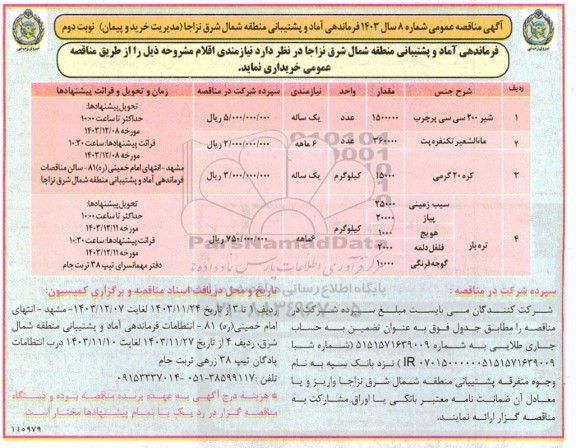 آگهی مناقصه عمومی شماره ۸ سال ۱۴۰۳ فرماندهی آماد و پشتیبانی منطقه شمال شرق نزاجا (مدیریت خرید و پیمان) نوبت دوم
فرماندهی آماد و پشتیبانی منطقه شمال شرق نزاجا در نظر دارد نیازمندی اقلام مشروحه ذیل را از طریق مناقصه
عمومی خریداری نماید.
ردیف شرح جنس مقدار واحد نیازمندی سپرده شرکت در مناقصه زمان و تحویل و قرائت پیشنهادها
۱ شیر ۲۰۰ سی سی پرچرب ۱۵۰۰۰۰۰ عدد یک ساله ۵/۰۰۰/۰۰۰/۰۰۰ ریال
۲ ماءالشعیر تکنفره پت ۳۶۰۰۰۰ عدد ۶ ماهه ۲/۰۰۰/۰۰۰/۰۰۰ ریال
۳ کره ۲۰ گرمی ۱۵۰۰۰ کیلوگرم یک ساله ۳/۰۰۰/۰۰۰/۰۰۰ ریال
تحویل پیشنهادها:
حداکثر تا ساعت ۱۰:۰۰
مورخه ۱۴۰۳/۱۲/۰۸
قرائت پیشنهادها: ساعت ۱۰:۳۰
مورخه ۱۴۰۳/۱۲/۰۸
مشهد - انتهای امام خمینی (ره) ۸۱ - سالن مناقصات
فرماندهی آماد و پشتیبانی منطقه شمال شرق نزاجا
۴ تره بار کیلوگرم ۶ ماهه ۷۵۰/۰۰۰/۰۰۰ ریال
سیب زمینی ۳۵۰۰۰
پیاز ۲۰۰۰۰
هویج ۱۰۰۰
فلفل دلمه
گوجه فرنگی ۱۰۰۰۰
تحویل پیشنهادها:
حداکثر تا ساعت ۱۰:۰۰
مورخه ۱۴۰۳/۱۲/۱۱
قرائت پیشنهادها: ساعت ۱۰:۳۰
مورخه ۱۴۰۳/۱۲/۱۱
دفتر مهمانسرای تیپ ۳۸ تربت جام
ParsNamadData
پایگاه اطلاع رسانی
سپرده شرکت در مناقصه:
شرکت کنندگان می بایست مبلغ سپرده شرکت در
مناقصه را مطابق جدول فوق به عنوان تضمین به حساب
جاری طلایی به شماره ۵۱۵۱۵۷۱۶۳۹۰۰۹ (شماره شبا
IR ۰۷۰۱۵۰۰۰۰۰۵۱۵۱۵۷۱۶۳۹۰۰۹) نزد بانک سپه به نام
وجوه متفرقه پشتیبانی منطقه شمال شرق نزاجا واریز و یا
معادل آن ضمانت نامه معتبر بانکی یا اوراق مشارکت به
مناقصه گزار ارائه نمایند.
تاریخ و محل دریافت اسناد مناقصه و برگزاری کمیسیون:
ردیف ۱ تا ۳ از تاریخ ۱۴۰۳/۱۱/۲۴ لغایت ۱۴۰۳/۱۲/۰۷ - مشهد - انتهای
امام خمینی (ره) ۸۱ - انتظامات فرماندهی آماد و پشتیبانی منطقه شمال
شرق، ردیف ۴ از تاریخ ۱۴۰۳/۱۱/۲۷ لغایت ۱۴۰۳/۱۱/۱۰ درب انتظامات
پادگان تیپ ۳۸ زرهی تربت جام
تلفن: ۳۸۵۹۹۱۱۷-۰۵۱ - ۰۹۱۵۳۳۳۷۰۱۴
* هزینه درج آگهی به عهده برنده مناقصه بوده و دستگاه
مناقصه گزار در رد یک یا تمام پیشنهادها مختار است.
۱۱۰۹۷۹